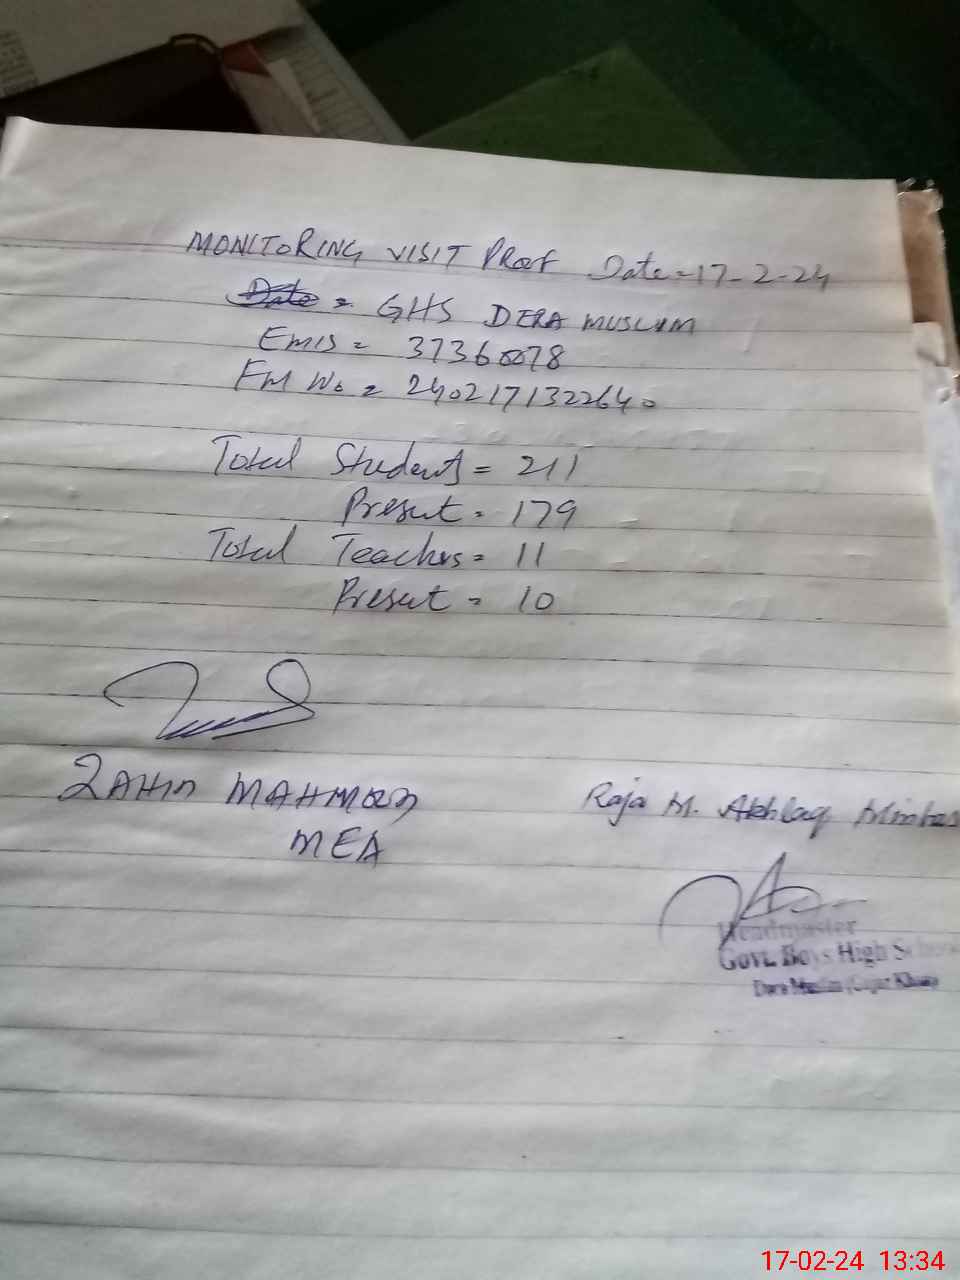 MONITORING VISIT PROOF Date = 17-2-24
Date = GHS DERA MUSLIM
EMIS = 37360078
FM No = 2402171322640
Total Students = 211
Present = 179
Total Teachers = 11
Present = 10
ZAHID MAHMOOD
MEA
Raja M. Akhlaq Minhas
Headmaster
Govt. Boys High School
Dera Muslim (Gujar Khan)
17-02-24 13:34